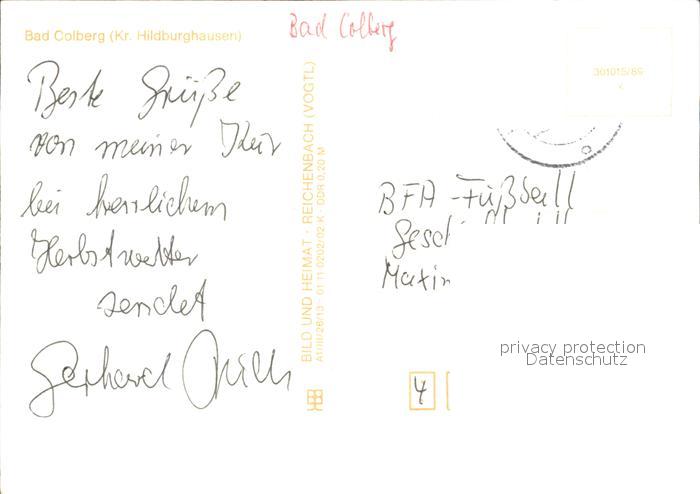 Bad Colberg (Kr. Hildburghausen)
Bad Colberg
Beste Grüße
von meiner Kur
bei herrlichem
Herbstwetter
sendet
Gerhard
BILD UND HEIMAT · REICHENBACH (VOGTL)
A1/III/26/13 · 01 11 0202/02 K · DDR 0,20 M
301015/89
BFA -Fußball
Gesch
Maxim
4
privacy protection
Datenschutz